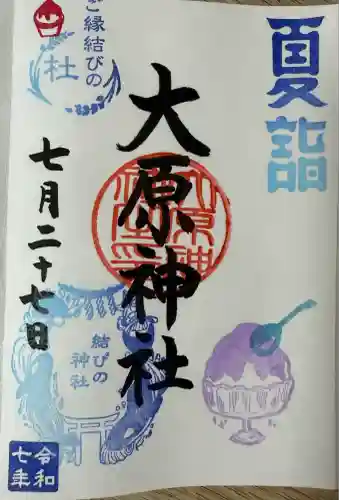 夏詣
ご縁結びの
杜
大原神社
七月二十七日
結びの
神社
令和
七年